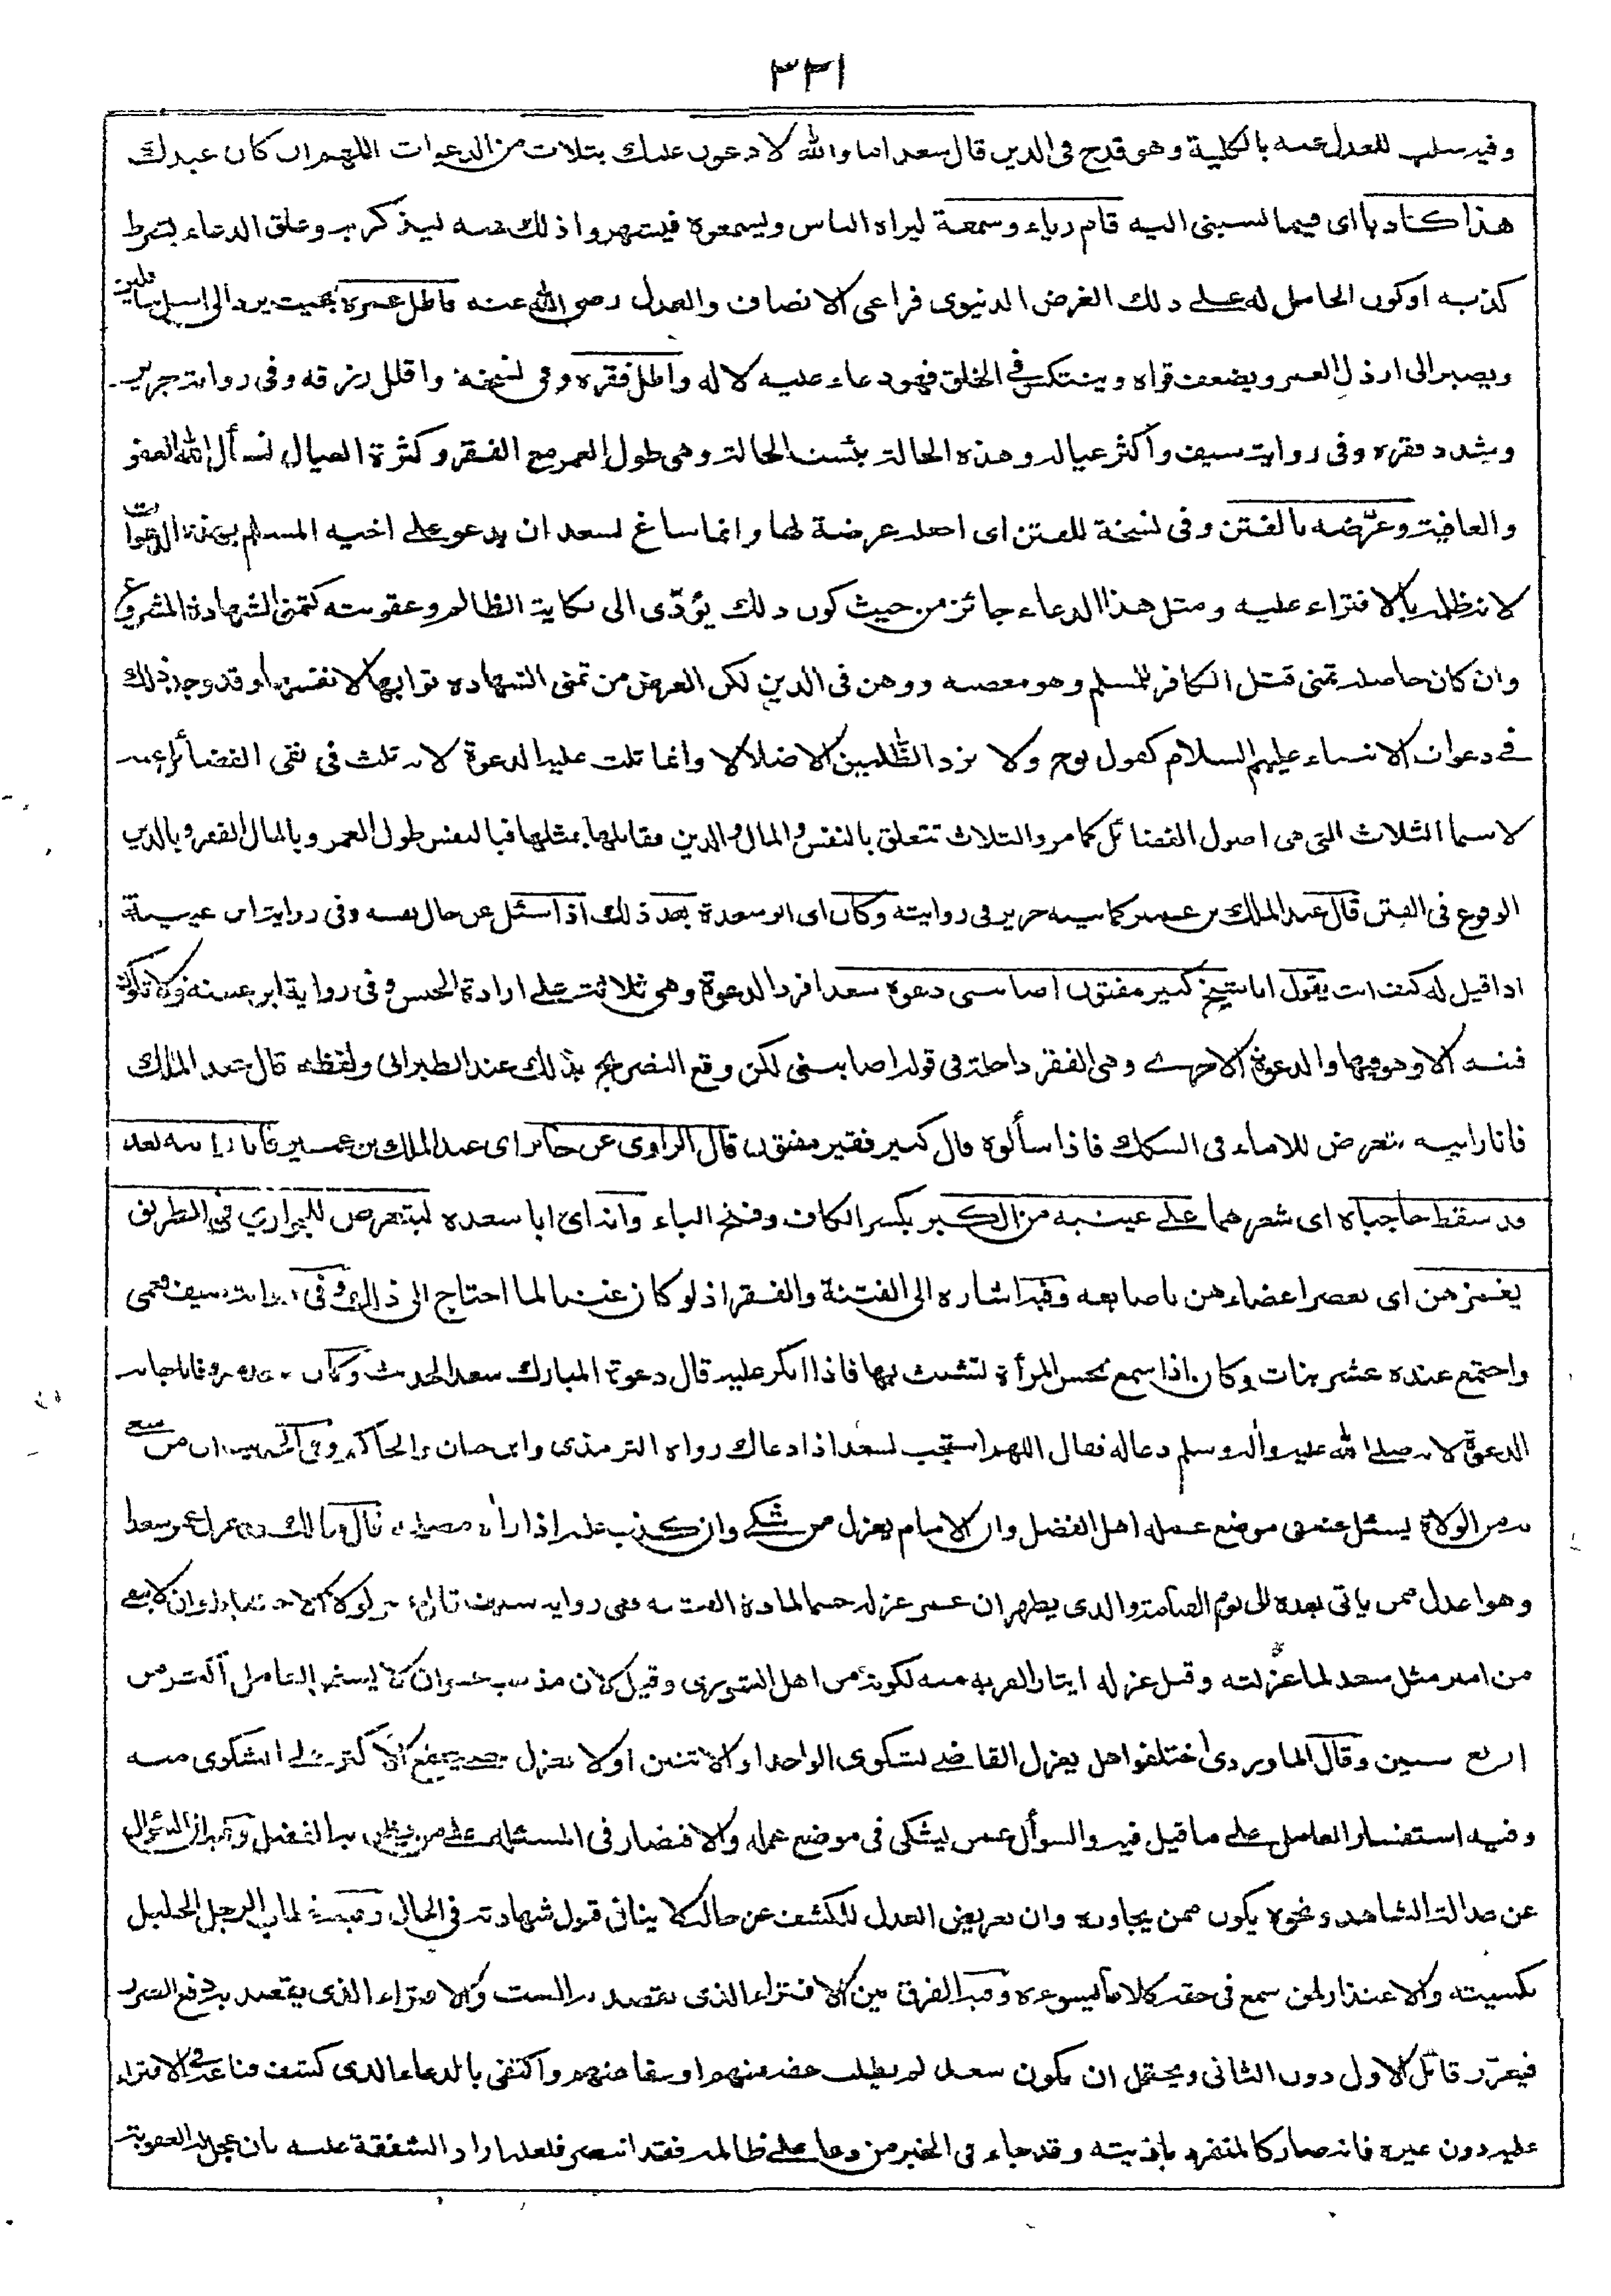 ٣٣١
وفيه سلب للعدل عنه بالكلية وهو قدح فى الدين قال سعد اما والله لادعون عليك بثلاث من الدعوات اللهم ان كان عبدك
هذا كاذبا اى فيما نسبنى اليه قام رياء وسمعة ليراه الناس وليسمعوه فيشهروا ذلك عنه ليذكر به وعلق الدعاء بشرط
كذبه او كون الحامل له على ذلك الغرض الدنيوى فراعى الانصاف والعدل رضى الله عنه فاطل عمره بحيث يرد الى اسفل سافلين
ويصير الى ارذل العمر ويضعف قواه وينتكس فى الخلق فهو دعاء عليه لا له واطل فقره وفى نسخة واقلل رزقه وفى رواية جرير
وشدد فقره وفى رواية سيف واكثر عياله وهذه الحالة بئست الحالة وهى طول العمر مع الفقر وكثرة العيال نسأل الله العفو
والعافية وعرّضه بالفتن وفى نسخة للفتن اى اجعله عرضة لها وانما ساغ لسعد ان يدعو على اخيه المسلم بهذه الدعوات
لانه ظلمه بالافتراء عليه ومثل هذا الدعاء جائز من حيث كون ذلك يؤدّى الى نكاية الظالم وعقوبته كتمنى الشهادة المشروع
وان كان حاصله تمنى قتل الكافر للمسلم وهو معصية ووهن فى الدين لكن الغرض من تمنى الشهادة ثوابها لا نفسها وقد وجد ذلك
فى دعوات الانبياء عليهم السلام كقول نوح ولا تزد الظّلمين الا ضلالا وانما ثلث عليه الدعوة لانه ثلث فى نفى الفضائل عنه
لاسيما الثلاث التى هى اصول الفضائل كما مر والثلاث تتعلق بالنفس والمال والدين فقابلها بمثلها فبالنفس طول العمر وبالمال الفقر وبالدين
الوقوع فى الفتن قال عبد الملك بن عمير كما بينه جرير فى روايته وكان اى ابو سعدة بعد ذلك اذا سئل عن حال نفسه وفى رواية ابن عيينة
اذا قيل له كيف انت يقول انا شيخ كبير مفتون اصابتنى دعوة سعد افرد الدعوة وهى ثلاثة على ارادة الجنس وفى رواية ابن عيينة ولا تكون
فتنة الا وهو فيها والدعوة الاخرى وهى الفقر داخلة فى قوله اصابتنى لكن وقع التصريح بذلك عند الطبرانى ولفظه قال عبد الملك
فانا رايته يتعرض للاماء فى السكك فاذا سألوه قال كبير فقير مفتون قال الراوى عن جابر اى عبد الملك بن عمير فانا رايته بعد
قد سقط حاجباه اى شعرهما على عينيه من الكبر بكسر الكاف وفتح الباء وانه اى ابا سعدة ليتعرض للجوارى فى الطريق
يغمزهن اى يعصر اعضاءهن باصابعه وفيه اشارة الى الفتنة والفقر اذ لو كان غنيا لما احتاج الى ذلك وفى رواية سيف فعمى
واجتمع عنده عشر بنات وكان اذا سمع بحس المرأة تشبث بها فاذا انكر عليه قال دعوة المبارك سعد الحديث وكان سعد معروفا باجابة
الدعوة لانه صلى الله عليه واله وسلم دعا له فقال اللهم استجب لسعد اذا دعاك رواه الترمذى وابن حبان والحاكم وفى الحديث ان من سعى
به من الولاة يسئل عنه فى موضع عمله اهل الفضل وان الامام يعزل من شكى وان كذب عليه اذا راه مصلحة قال مالك قد عزل عمر سعدا
وهو اعدل ممن ياتى بعده الى يوم القيامة والذى يظهر ان عمر عزله حسما لمادة الفتنة ففى رواية سيف قال عمر لولا الاحتياط وان لا يتقى
من امير مثل سعد لما عزلته وقيل عزله ايثارا لقربه منه لكونه من اهل الشورى وقيل لان مذهب عمر ان لا يستمر بالعامل اكثر من
اربع سنين وقال الماوردى اختلفوا هل يعزل القاضى بشكوى الواحد او الاثنين او لا يعزل حتى يجتمع الاكثر على الشكوى منه
وفيه استفسار العامل على ما قيل فيه والسوأل عمن يشكى فى موضع عمله والاقتصار فى المسئلة على من يظن به الفضل وفيه ان السؤال
عن عدالة الشاهد ونحوه يكون ممن يجاوره وان تعريض العدل للكشف عن حاله لا ينافى قبول شهادته فى الحال وفيه خطاب الرجل الجليل
بكنيته والاعتذار لمن سمع فى حقه كلاما يسوءه وفيه الفرق بين الافتراء الذى يقصد به السب والافتراء الذى يقصد به دفع الضرر
فيعزّر قائل الاول دون الثانى ويحتمل ان يكون سعد لم يطلب حقه منهم او عفا عنهم واكتفى بالدعاء الذى كشف قناعه فى الافتراء
عليه دون غيره فانه صار كالمنفرد باذيته وقد جاء فى الخبر من دعا على ظالمه فقد انتصر فلعله اراد الشفقة عليه بان عجل له العقوبة